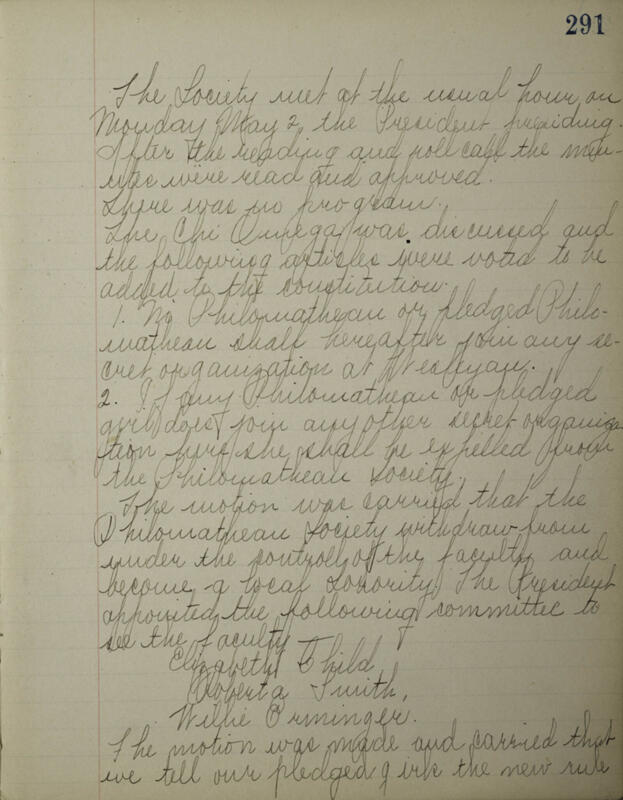 291
The Society met at the usual hour on
Monday May 2, the President presiding.
After the reading and roll call the min-
utes were read and approved.
There was no program.
The Chi Omega was discussed and
the following articles were voted to be
added to the constitution.
1. No Philomathean or pledged Philo-
mathean shall hereafter join any se-
cret organization at Wesleyan.
2. If any Philomathean or pledged
girl does join any other secret organiza-
tion here she shall be expelled from
the Philomathean Society.
The motion was carried that the
Philomathean Society withdraw from
under the controll of the faculty and
become a local Sorority. The President
appointed the following committee to
see the faculty
Elizabeth Child
Roberta Smith,
Willie Erminger.
The motion was made and carried that
we tell our pledged girls the new rule